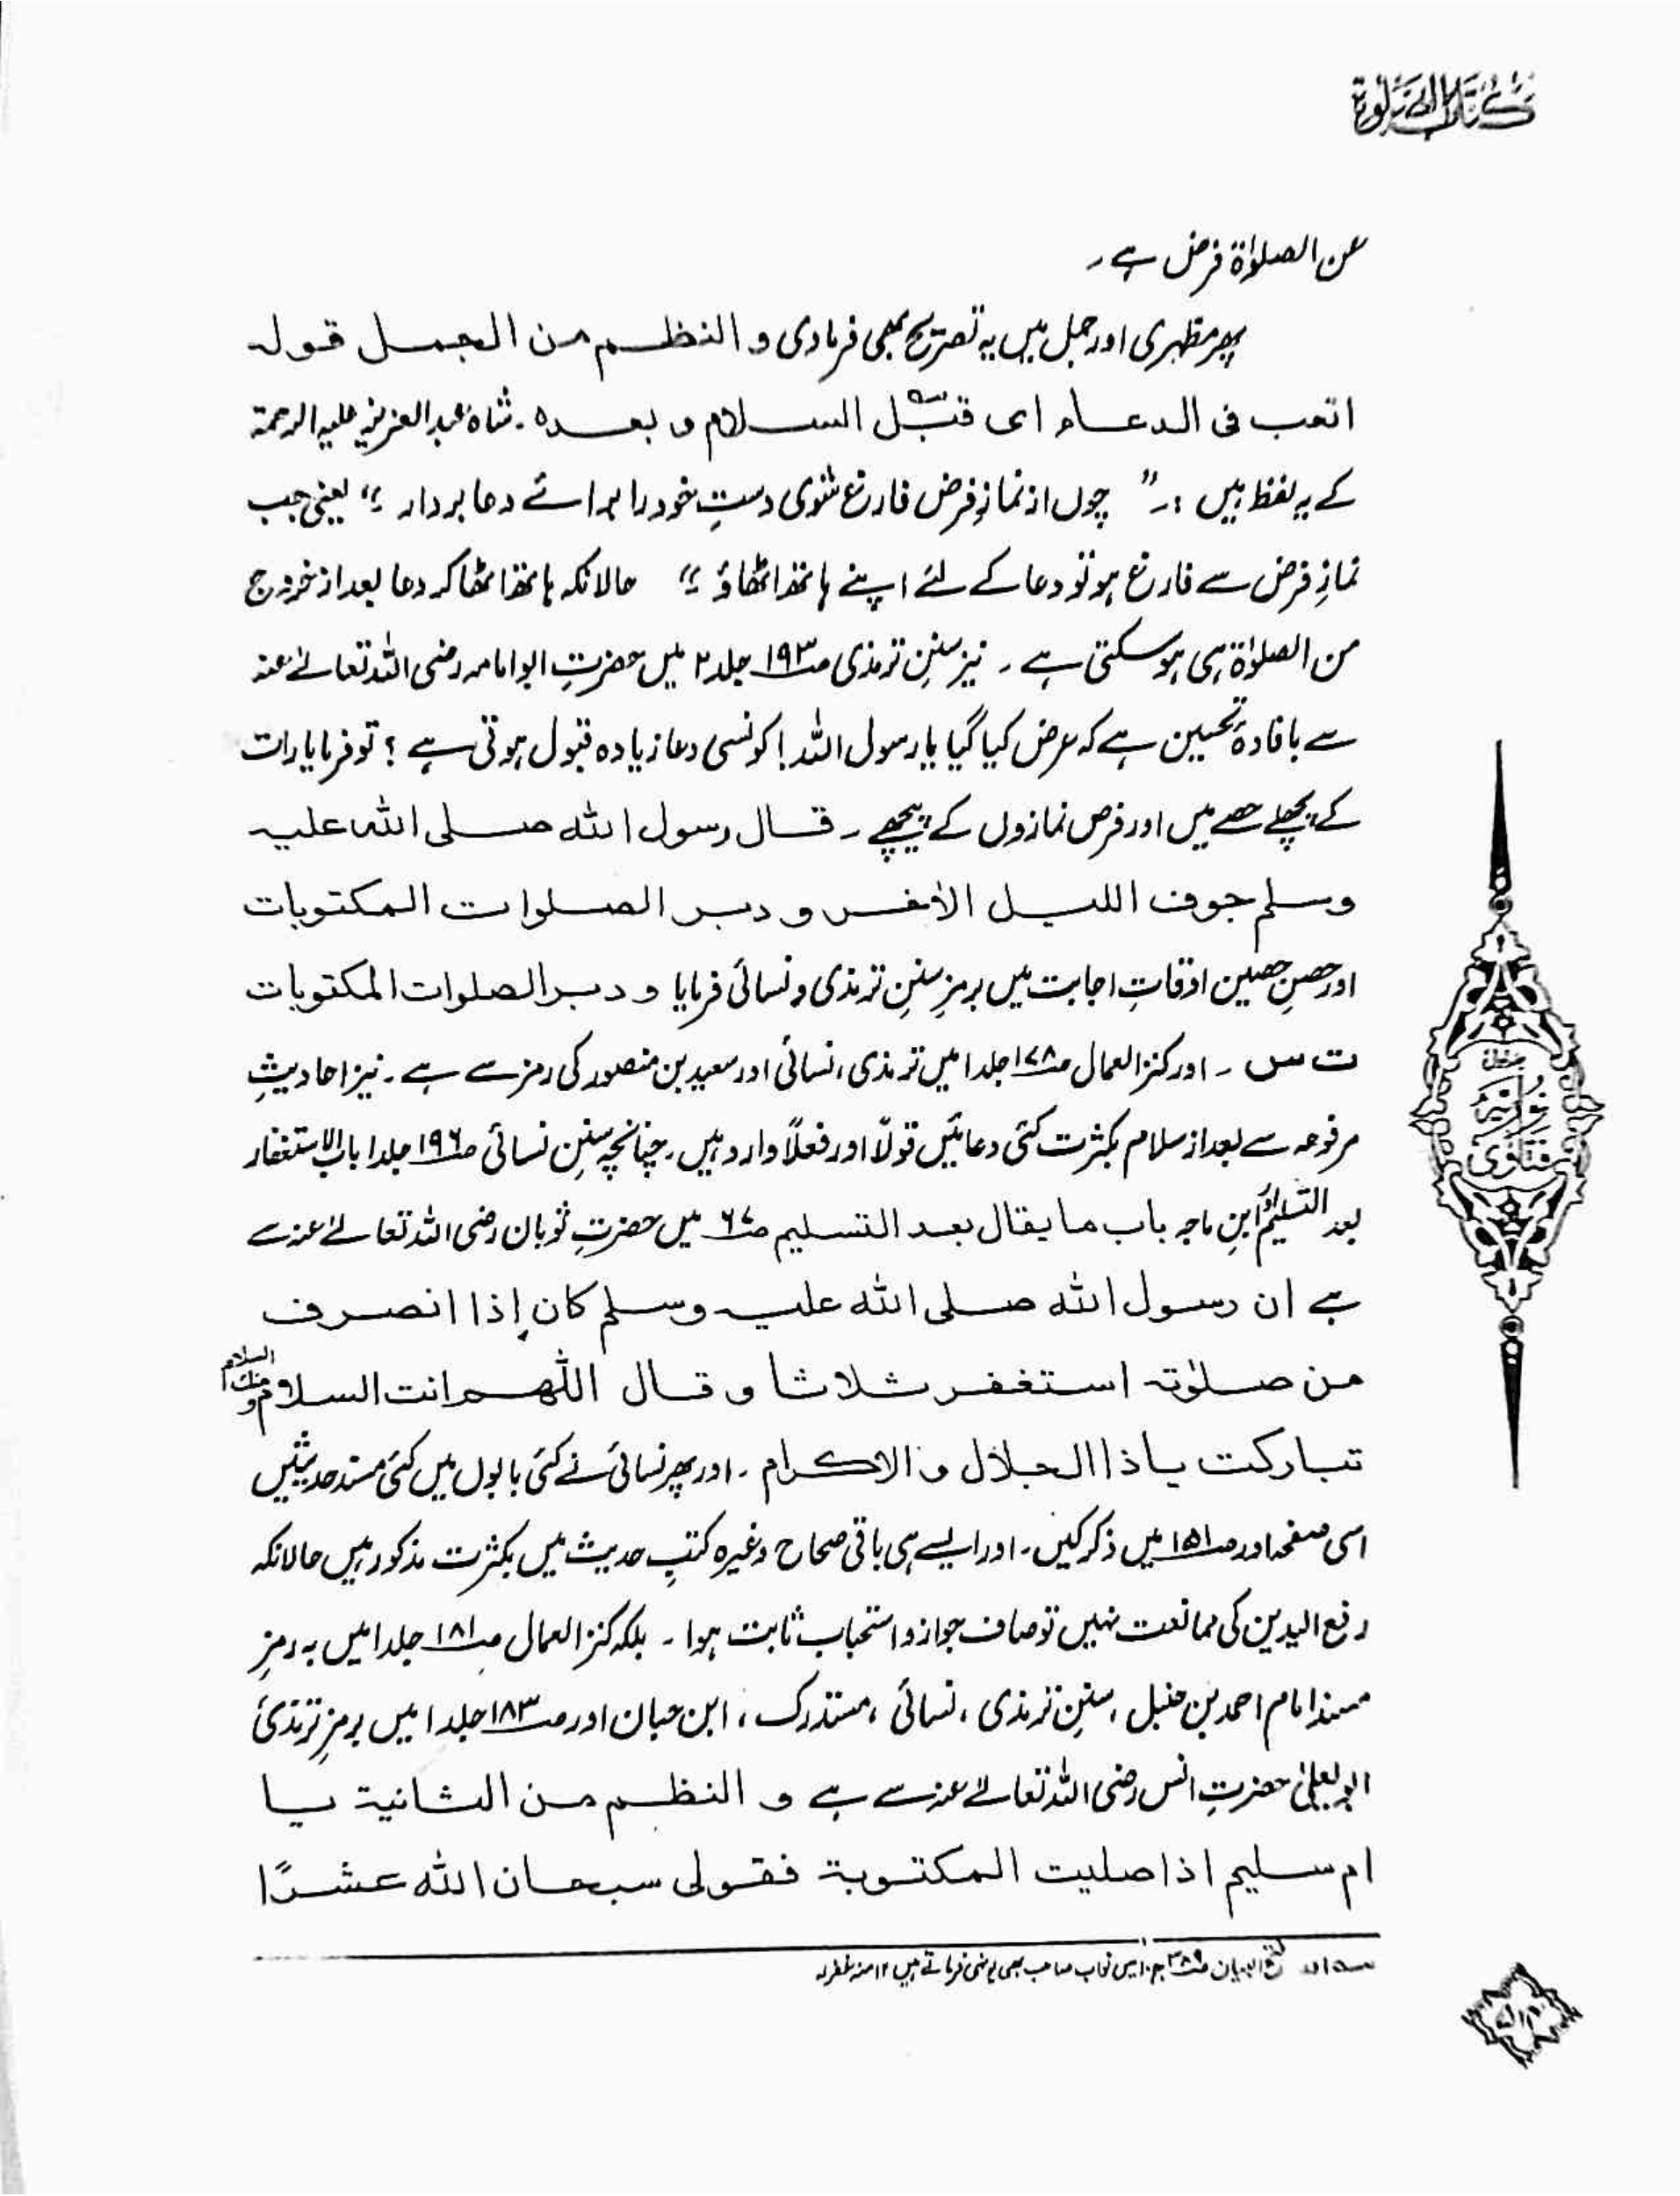 کتاب الصلوٰة
عن الصلوٰة فرض ہے۔
پھر مظہری اور جمل میں یہ تصریح بھی فرمادی و النظم من الجمل قولہ
اتعب فی الدعاء ای قبل السلام و بعدہ۔ شاہ عبدالعزیز علیہ الرحمۃ
کے یہ لفظ ہیں :۔ " چوں از نمازِ فرض فارغ شوی دستِ خود را برائے دعا بردار ؛" یعنی جب
نمازِ فرض سے فارغ ہو تو دعا کے لئے اپنے ہاتھ اٹھاؤ ؛" حالانکہ ہاتھ اٹھا کر دعا بعد از خروج
من الصلوٰة ہی ہو سکتی ہے۔ نیز سننِ ترمذی صـ۱۹۳ جلد ۲ میں حضرتِ ابو امامہ رضی اللہ تعالےٰ عنہ
سے بافادۂ تحسین ہے کہ عرض کیا گیا یا رسول اللہ! کونسی دعا زیادہ قبول ہوتی ہے ؟ تو فرمایا رات
کے پچھلے حصے میں اور فرض نمازوں کے پیچھے۔ قال رسول اللہ صلی اللہ علیہ
وسلم جوف اللیل الاٰخر و دبر الصلوات المکتوبات
اور حصنِ حصین اوقاتِ اجابت میں برمزِ سننِ ترمذی و نسائی فرمایا و دبر الصلوات المکتوبات
ت س ۔ اور کنز العمال صـ۱۷۸ جلد ۱ میں ترمذی، نسائی اور سعید بن منصور کی رمز سے ہے۔ نیز احادیثِ
مرفوعہ سے بعد از سلام بکثرت کئی دعائیں قولًا اور فعلًا وارد ہیں۔ چنانچہ سننِ نسائی صـ۱۹۶ جلد ۱ باب الاستغفار
بعد التسلیم اور ابنِ ماجہ باب ما یقال بعد التسلیم صـ۶۷ میں حضرتِ ثوبان رضی اللہ تعالےٰ عنہ سے
ہے ان رسول اللہ صلی اللہ علیہ وسلم کان إذا انصرف
من صلوٰتہ استغفر ثلاثا و قال اللّٰھم انت السلام و منک السلام
تبارکت یا ذا الجلال و الاکرام ۔ اور پھر نسائی نے کئی بابوں میں کئی مسند حدیثیں
اسی صفحہ اور صـ۱۵۱ میں ذکر کیں۔ اور ایسے ہی باقی صحاح وغیرہ کتبِ حدیث میں بکثرت مذکور ہیں حالانکہ
رفع الیدین کی ممانعت نہیں تو صاف جواز و استحباب ثابت ہوا ۔ بلکہ کنز العمال صـ۱۸۱ جلد ۱ میں بہ رمزِ
مسند امام احمد بن حنبل ، سننِ ترمذی ، نسائی ، مستدرک ، ابن حبان اور صـ۱۸۳ جلد ۱ میں برمزِ ترمذی
ابو یعلیٰ حضرتِ انس رضی اللہ تعالےٰ عنہ سے ہے و النظم من الثانیۃ یا
ام سلیم اذا صلیت المکتوبۃ فقولی سبحان اللہ عشرًا
فتح البیان صـ۳۸۹ ج ۱۰ میں نواب صاحب بھی یونہی فرماتے ہیں ۱۲ منہ غفرلہ
فتاویٰ نوریہ